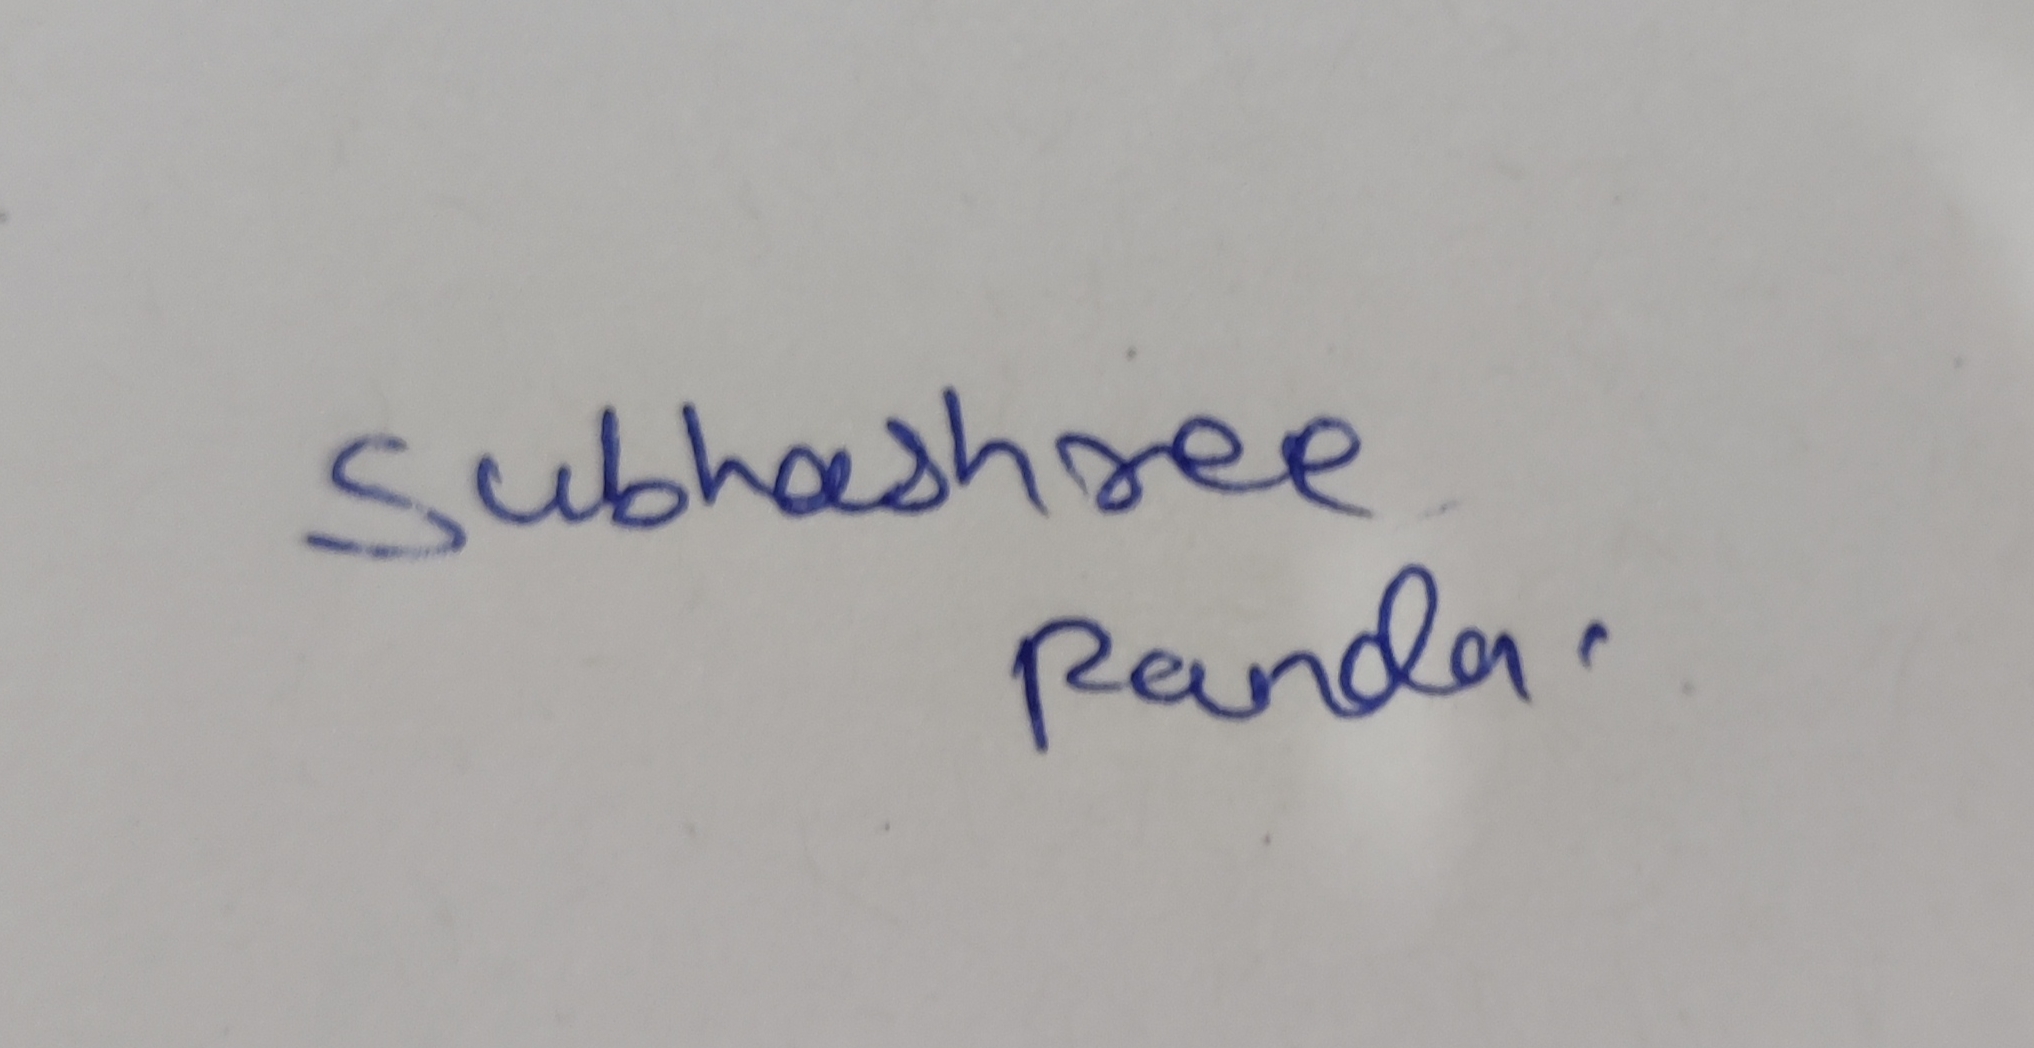 Subhashree
Panda.